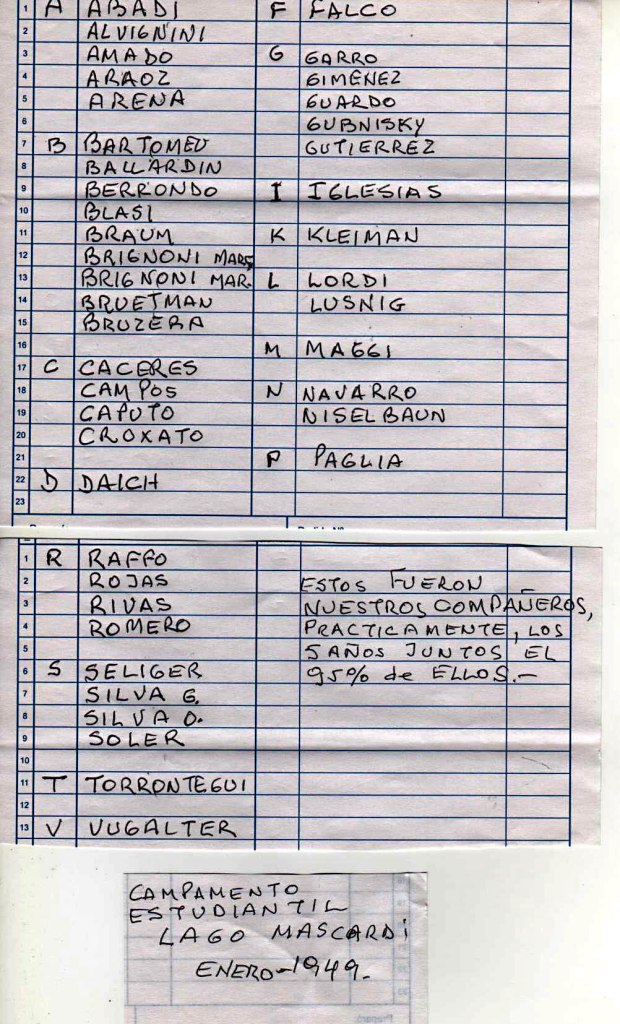 1 A ABADI
2 ALVIGNINI
3 AMADO
4 ARAOZ
5 ARENA
6
7 B BARTOMEU
8 BALLARDIN
9 BERRONDO
10 BLASI
11 BRAUM
12 BRIGNONI MARC
13 BRIGNONI MAR.
14 BRUETMAN
15 BRUZERA
16
17 C CACERES
18 CAMPOS
19 CAPUTO
20 CROXATO
21
22 D DAICH
23
F FALCO
G GARRO
GIMÉNEZ
GUARDO
GUBNISKY
GUTIERREZ
I IGLESIAS
K KLEIMAN
L LORDI
LUSNIG
M MAGGI
N NAVARRO
NISELBAUN
P PAGLIA
1 R RAFFO
2 ROJAS
3 RIVAS
4 ROMERO
5
6 S SELIGER
7 SILVA G.
8 SILVA O.
9 SOLER
10
11 T TORRONTEGUI
12
13 V VUGALTER
ESTOS FUERON
NUESTROS COMPAÑEROS,
PRACTICAMENTE, LOS
5 AÑOS JUNTOS EL
95% de ELLOS.-
CAMPAMENTO
ESTUDIANTIL
LAGO MASCARDi
ENERO-1949.